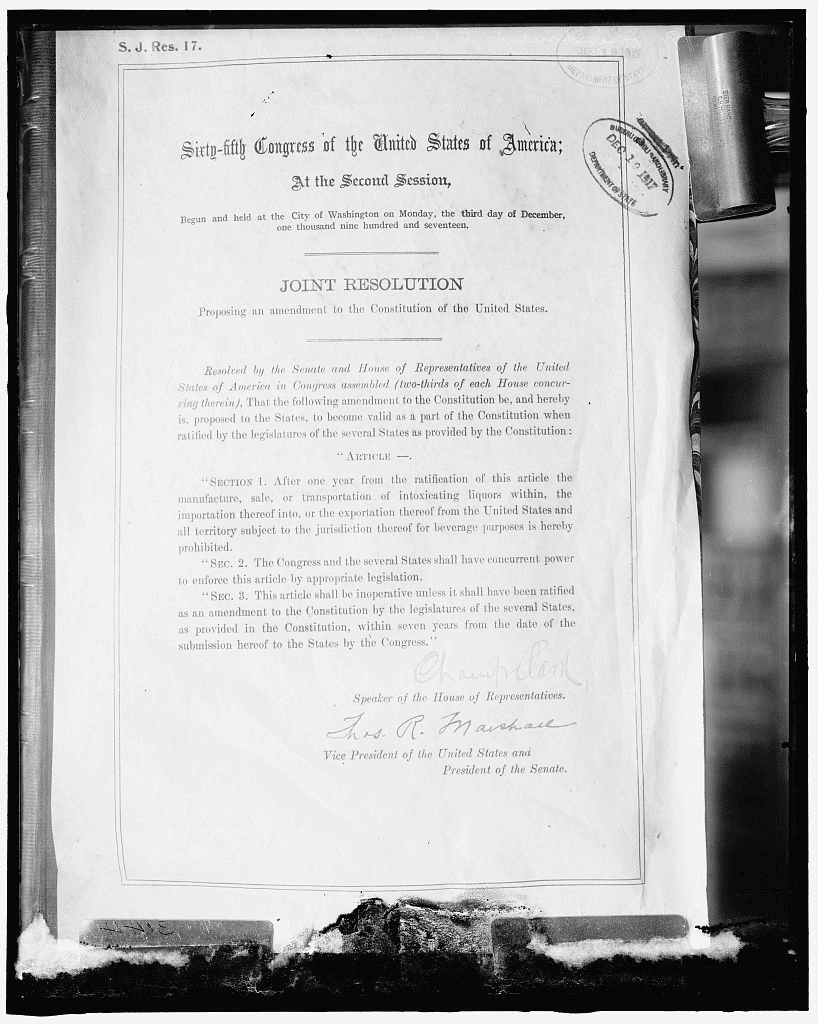 S. J. Res. 17.
DEPARTMENT OF STATE
DEC 19 1917
DEPARTMENT OF STATE
Sixty-fifth Congress of the United States of America;
At the Second Session,
Begun and held at the City of Washington on Monday, the third day of December,
one thousand nine hundred and seventeen.
JOINT RESOLUTION
Proposing an amendment to the Constitution of the United States.
Resolved by the Senate and House of Representatives of the United
States of America in Congress assembled (two-thirds of each House concur-
ring therein), That the following amendment to the Constitution be, and hereby
is, proposed to the States, to become valid as a part of the Constitution when
ratified by the legislatures of the several States as provided by the Constitution:
"ARTICLE —.
"SECTION 1. After one year from the ratification of this article the
manufacture, sale, or transportation of intoxicating liquors within, the
importation thereof into, or the exportation thereof from the United States and
all territory subject to the jurisdiction thereof for beverage purposes is hereby
prohibited.
"SEC. 2. The Congress and the several States shall have concurrent power
to enforce this article by appropriate legislation.
"SEC. 3. This article shall be inoperative unless it shall have been ratified
as an amendment to the Constitution by the legislatures of the several States,
as provided in the Constitution, within seven years from the date of the
submission hereof to the States by the Congress."
Champ Clark
Speaker of the House of Representatives.
Thos. R. Marshall
Vice President of the United States and
President of the Senate.